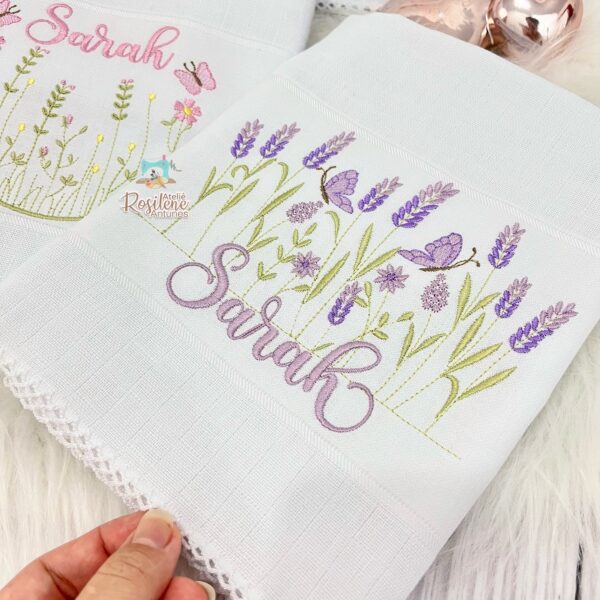 Sarah
Ateliê
Rosilene
Antunes
Sarah